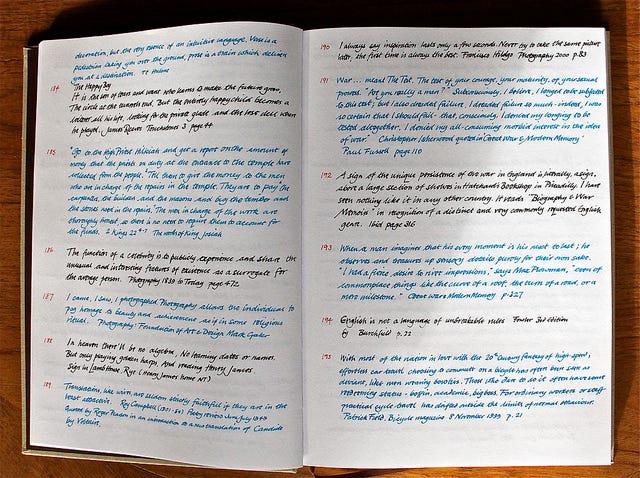 decoration, but the very essence of an intuitive language. Verse is a
pedestrian taking you over the ground, prose is a train which delivers
you at a destination. TE Hulme
184 The Happy Boy
It is the son of tears and want who learns to make the future grow,
The circle at the tunnel's end. But the merely happy child becomes a
labour all his life, looking for the private glade and the lost dell where
he played. James Reeves Touchstones 3 page 44
185 "Go to the High Priest Hilkiah and get a report on the amount of
money that the priests on duty at the entrance to the temple have
collected from the people. Tell them to give the money to the men
who are in charge of the repairs in the temple. They are to pay the
carpenters, the builders and the masons and buy the timber and
the stones used in the repairs. The men in charge of the work are
thoroughly honest, so there is no need to require them to account for
the funds. 2 Kings 22 4-7 The words of King Josiah
186 The function of a celebrity is to publicly experience and share the
unusual and interesting features of existence as a surrogate for
the average person. Photography 1839 to Today page 472
187 I came, I saw, I photographed. Photography allows the individual to
pay homage to beauty and achievement as if in some religious
ritual. Photography: Foundation of Art & Design Mark Galer
188 In heaven there'll be no algebra, No learning dates or names,
But only playing golden harps, And reading Henry James.
Sign in Lamb House, Rye (Henry James home NT)
189 Translations, like wives, are seldom strictly faithful if they are in the
least attractive. Roy Campbell (1901-57) Poetry review June July 1949
Quoted by Roger Pearson in an introduction to a new translation of Candide
by Voltaire.
190 I always say inspiration lasts only a few seconds. Never try to take the same picture
later, the first time is always the best. Francisco Hidalgo Photography 2000 p.83
191 War... meant The Test. The test of your courage, your maturity, of your sexual
prowess. "Are you really a man?" Subconsciously, I believe, I longed to be subjected
to this test; but I also dreaded failure. I dreaded failure so much - indeed, I was
so certain that I should fail - that, consciously, I denied my longing to be
tested altogether. I denied my all-consuming morbid interest in the idea
of "war". Christopher Isherwood quoted in Great War & Modern Memory
Paul Fussell page 110
192 A sign of the unique persistence of the war in England is literally, a sign,
above a large section of shelves in Hatchards Bookshop in Piccadilly. I have
seen nothing like it in any other country. It reads "Biography & War
Memoirs" in recognition of a distinct and very commonly requested English
genre. Ibid page 316
193 When a man imagines that his every moment is his next to last; he
observes and treasures up sensory details purely for their own sake.
"I had a fierce desire to rivet impressions," says Max Plowman, "even of
commonplace things like the curve of a roof, the turn of a road, or a
mere milestone." Great War & Modern Memory p.327
194 English is not a language of unbreakable rules Fowler 3rd edition
by Burchfield p.72
195 With most of the nation in love with the 20th Century fantasy of high-speed,
effortless car travel choosing to commute on a bicycle has often been seen as
deviant, like men wearing bowties. Those who dare to do it often have some
redeeming status - boffin, academic, big boss. For ordinary workers or staff
practical cycle-travel has drifted outside the limits of normal behaviour.
Patrick Field, Bicycle magazine 8 November 1999 p.21